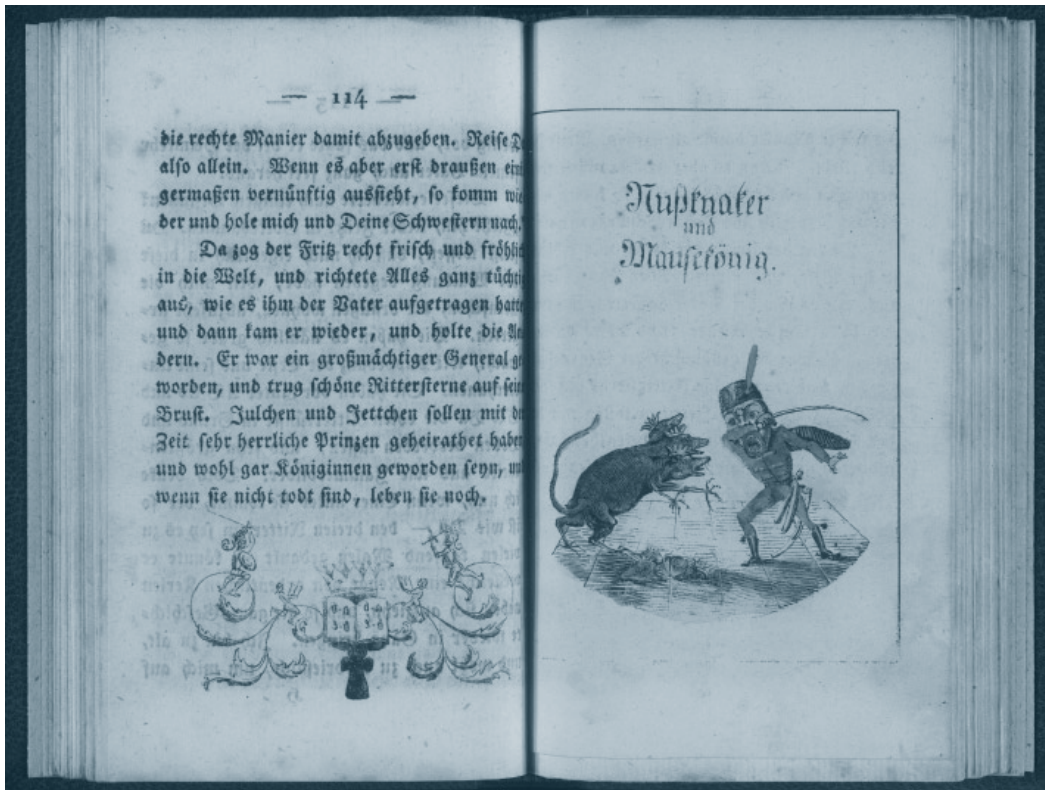 — 114 —
die rechte Manier damit abzugeben. Reise D
also allein. Wenn es aber erst draußen ein
germaßen vernünftig aussieht, so komm wie
der und hole mich und Deine Schwestern nach.
Da zog der Fritz recht frisch und fröhlic
in die Welt, und richtete Alles ganz tüchtig
aus, wie es ihm der Vater aufgetragen hatte
und dann kam er wieder, und holte die An
dern. Er war ein großmächtiger General ge
worden, und trug schöne Rittersterne auf sein
Brust. Julchen und Jettchen sollen mit der
Zeit sehr herrliche Prinzen geheirathet haben
und wohl gar Königinnen geworden seyn, un
wenn sie nicht todt sind, leben sie noch.
Nußknaker
und
Mausekönig.